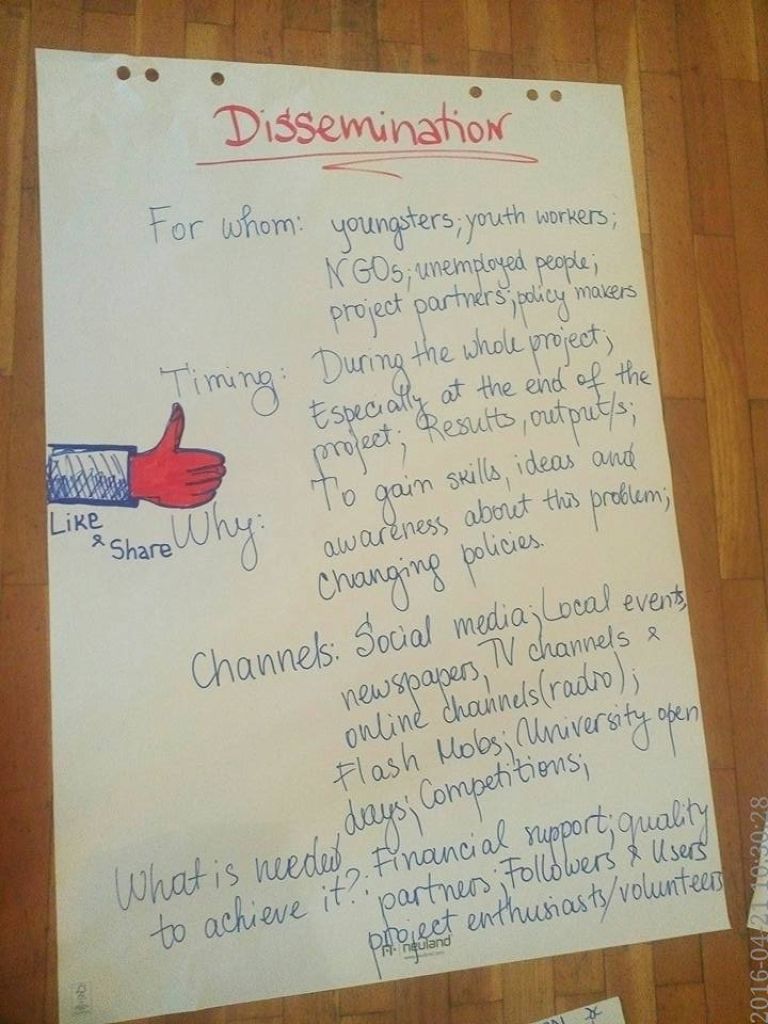 Dissemination
For whom: youngsters; youth workers;
NGOs; unemployed people;
project partners; policy makers
Timing: During the whole project;
Especially at the end of the
project; Results, output/s;
Like
& Share
Why: To gain skills, ideas and
awareness about this problem;
changing policies.
Channels: Social media; Local events,
newspapers, TV channels &
online channels (radio);
Flash Mobs; University open
days; Competitions;
What is needed
to achieve it?: Financial support; quality
partners; Followers & Users
project enthusiasts/volunteers
neuland
2016-04-21 10:30:28